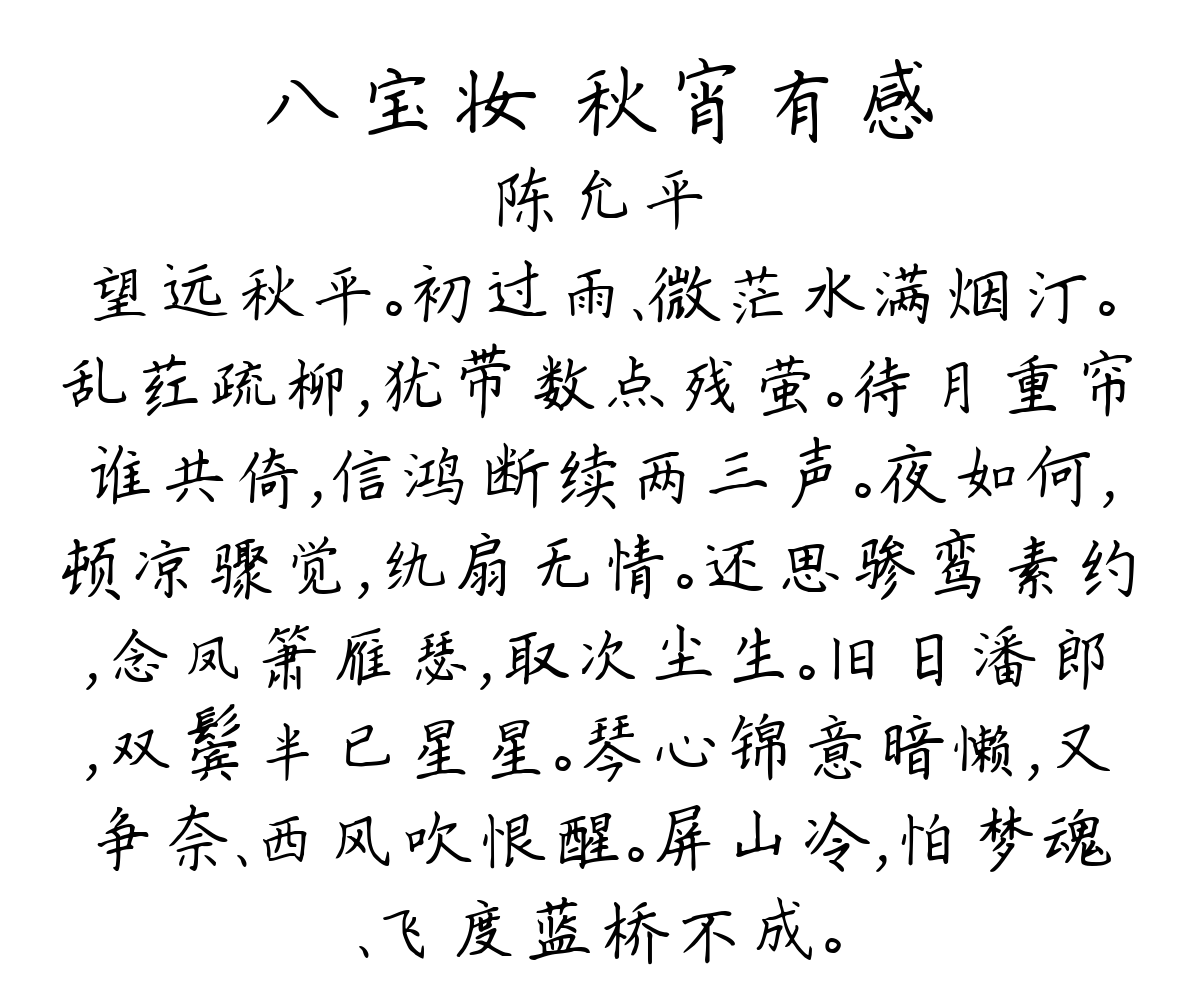 八宝妆 秋宵有感
陈允平
望远秋平。初过雨、微茫水满烟汀。
乱荭疏柳,犹带数点残萤。待月重帘
谁共倚,信鸿断续两三声。夜如何,
顿凉骤觉,纨扇无情。还思骖鸾素约
,念凤箫雁瑟,取次尘生。旧日潘郎
,双鬓半已星星。琴心锦意暗懒,又
争奈、西风吹恨醒。屏山冷,怕梦魂
、飞度蓝桥不成。